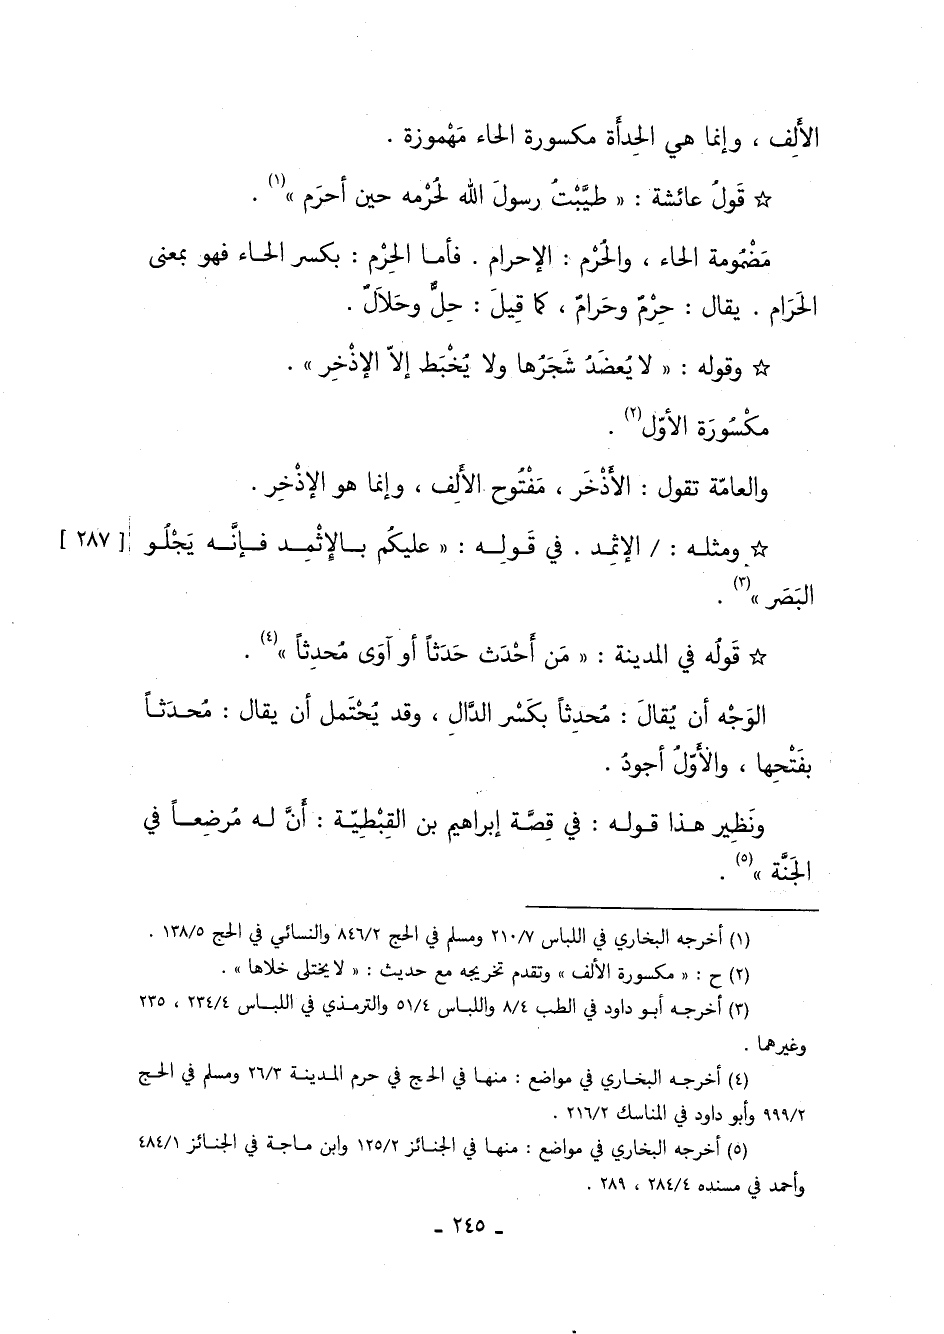 الأَلِف ، وإنما هي الحِدأَة مكسورة الحاء مَهْموزة .
☆ قَولُ عائشة : « طيَّبْتُ رسولَ الله لحُرْمه حين أحرَم »(١) .
مَضْمُومة الحاء ، والحُرْم : الإحرام . فأما الحِرْم : بكسر الحاء فهو بمعنى
الحَرَام . يقال : حِرْمٌ وحَرامٌ ، كما قيلَ : حِلٌّ وحَلاَلٌ .
☆ وقوله : « لا يُعضَدُ شَجَرُها ولا يُخْبَط إلاّ الإذْخِر » .
مكْسُورَة الأوّل(٢) .
والعامّة تقول : الأَذْخَر ، مَفْتُوح الأَلِف ، وإنما هو الإذْخِر .
☆ ومثله : / الإثمد . في قَولِه : « عليكُم بالإِثْمِد فإنَّه يَجْلُو [ ٢٨٧ ]
البَصَر »(٣) .
☆ قَولُه في المدينة : « مَن أَحْدَث حَدَثاً أو آوَى مُحدِثاً »(٤) .
الوَجْه أن يُقالَ : مُحدِثاً بكَسْر الدَّالِ ، وقد يُحْتَمل أن يقال : مُحدَثاً
بفَتْحِها ، والأَوّلُ أجودُ .
ونَظِير هذا قوله : في قِصَّة إبراهيم بن القِبْطِيّة : أَنَّ له مُرضِعاً في
الجَنَّة »(٥) .
(١) أخرجه البخاري في اللباس ٢١٠/٧ ومسلم في الحج ٨٤٦/٢ والنسائي في الحج ١٣٨/٥ .
(٢) ح : « مكسورة الألف » وتقدم تخريجه مع حديث : « لا يختلى خلاها » .
(٣) أخرجه أبو داود في الطب ٨/٤ واللباس ٥١/٤ والترمذي في اللباس ٢٣٤/٤ ، ٢٣٥
وغيرهما .
(٤) أخرجه البخاري في مواضع : منها في الحج في حرم المدينة ٢٦/٣ ومسلم في الحج
٩٩٩/٢ وأبو داود في المناسك ٢١٦/٢ .
(٥) أخرجه البخاري في مواضع : منها في الجنائز ١٢٥/٢ وابن ماجة في الجنائز ٤٨٤/١
وأحمد في مسنده ٢٨٤/٤ ، ٢٨٩ .
ـ ٢٤٥ ـ